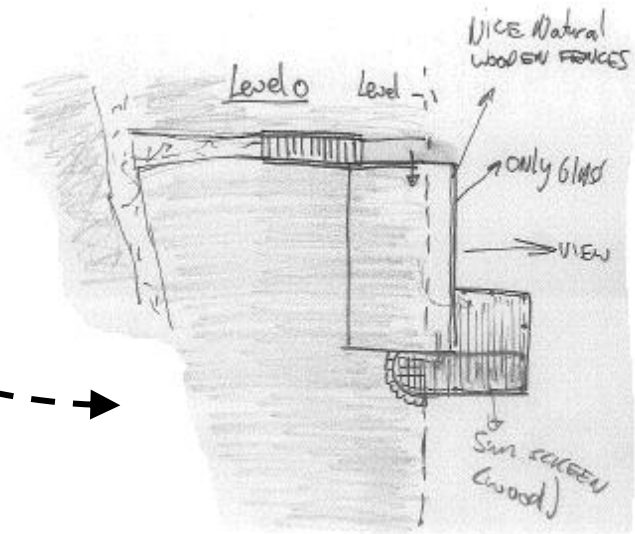 NICE Natural
WOODEN FENCES
Level 0
Level -1
ONLY GlASS
VIEW
SUN SCREEN
(wood)